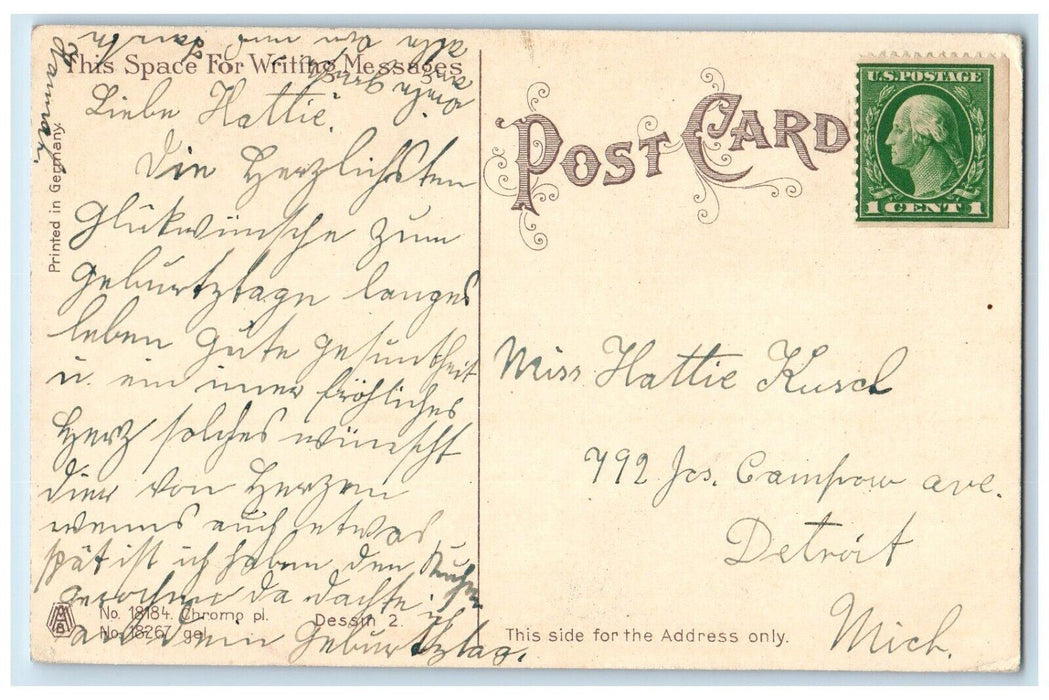 This Space For Writing Messages
Liebe Hattie.
Die Herzlichsten
Glükwünsche zum
geburtztage langes
leben gute gesuntheit
u. ein imer fröhliches
Herz solches wünscht
dier von Herzen
wenns auch etwas
spät ist ich haben den Kuchen
gerochen da dachte ich
an dein Geburtztag.
Hannah.
Printed in Germany.
No. 18184. Chromo pl.
No. 18267. gel.
Dessin 2.
POST CARD
U.S. POSTAGE
1 CENT 1
Miss Hattie Kusch
792 Jos. Campow ave.
Detroit
Mich.
This side for the Address only.